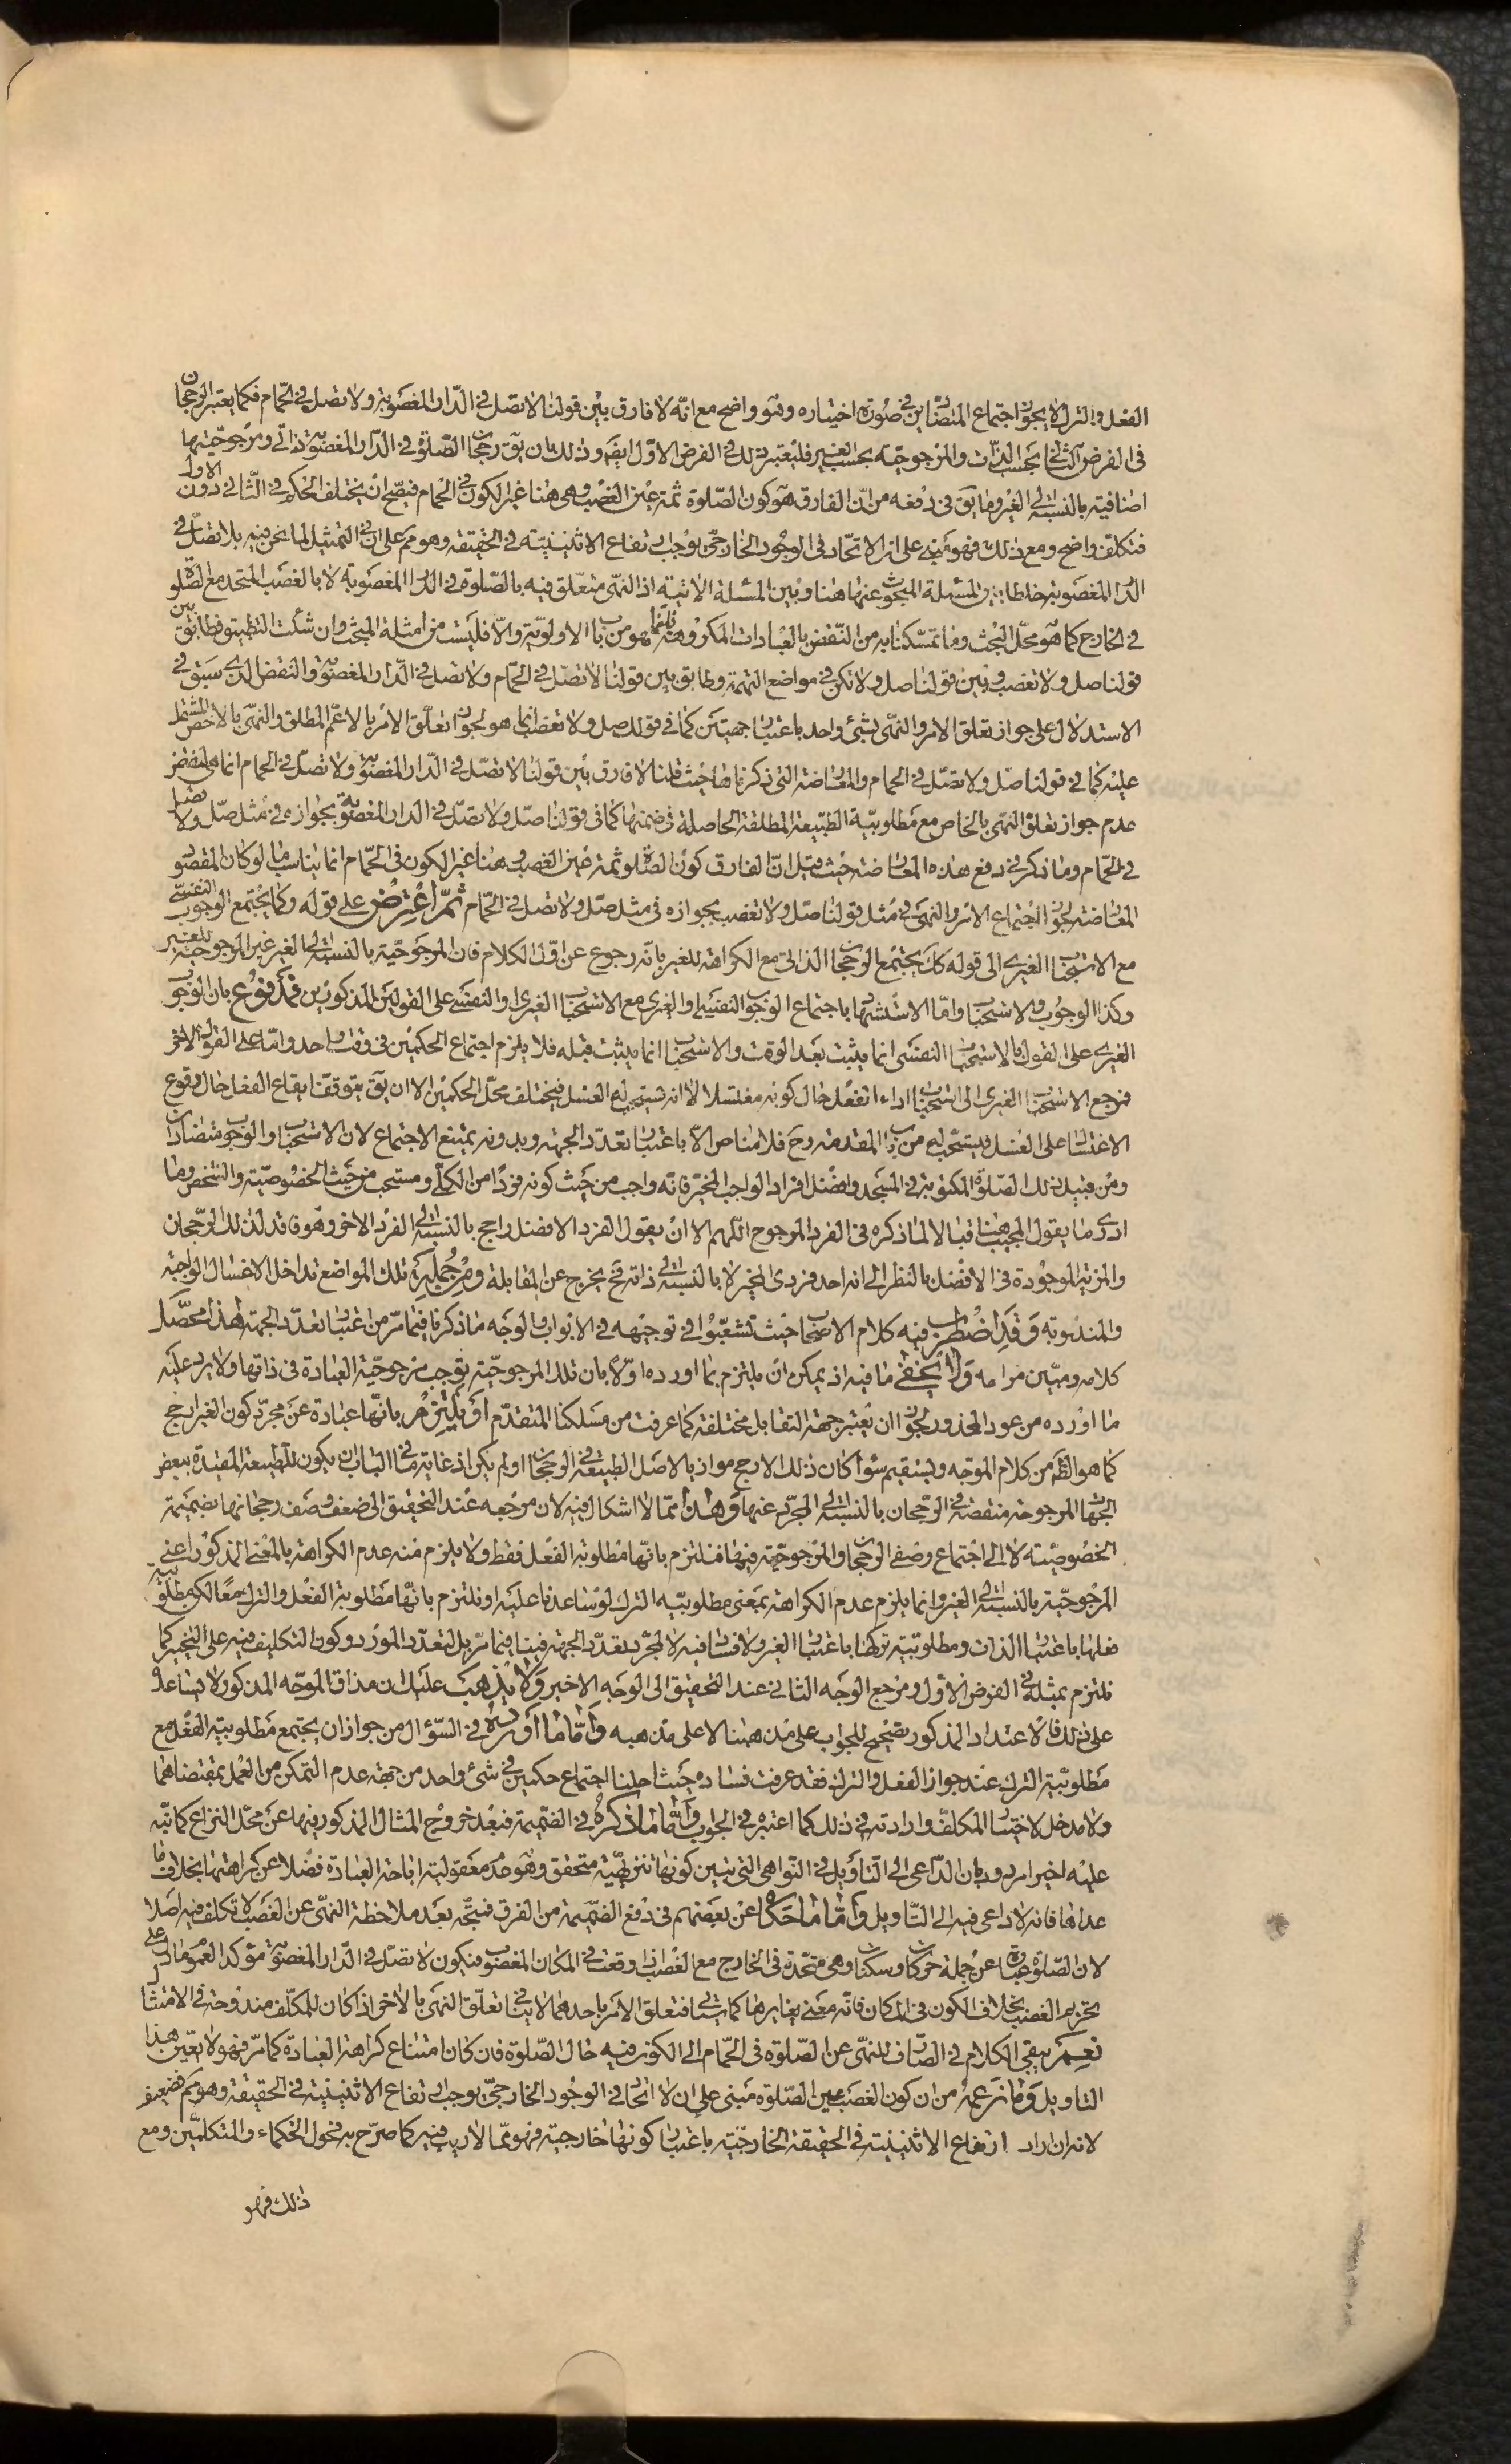 الفعل والترك لا يجوز اجتماع المتضادين فى صورة اختياره وهو واضح مع انّه لا فارق بين قولنا لا تصل فى الدار المغصوبة ولا تصل فى الحمام فكما يعتبر الرجحان
فى الفرض الثانى بحسب الذات والمرجوحيّة بحسب الغير فليعتبر ذلك فى الفرض الاوّل ايضا وذلك بان يق رجحان الصّلوة فى الدار المغصوبة ذاتى ومرجوحيّتها
اضافية بالنسبة الى الغير وما يق فى دفعه من انّ الفارق هو كون الصّلوة ثمة عين الغصب وهى هنا غير الكون فى الحمام فيصحّ ان يختلف الحكم فى الثانى دون الاول
فتكلف واضح ومع ذلك فهو مبنى على ان الاتّحاد فى الوجود الخارجى يوجب ارتفاع الاثنينيّة فى الحقيقة وهو مم على ان فى التمثيل لما نحن فيه بلا تصل فى
الدار المغصوبة خلطا بين المسئلة المبحوث عنها هنا وبين المسئلة الاتية اذ النهى متعلّق فيه بالصّلوة فى الدار المغصوبة لا بالغصب المتحد مع الصّلوة
فى الخارج كما هو محلّ البحث وما تمسّكنا به من النّقض بالعبادات المكروهة فانما هو من باب الاولويّة والّا فليست من امثلة المبحث وان شئت التطبيق فطابق بين
قولنا صل ولا تغصب وبين قولنا صل ولا تكن فى مواضع التهمة وطابق بين قولنا لا تصل فى الحمام ولا تصل فى الدار المغصوبة والنقض الذى سبق فى
الاستدلال على جواز تعلق الامر والنهى بشئ واحد باعتبار جهتين كما فى قولك صل ولا تغصب انما هو لجواز تعلّق الامر بالاعم المطلق والنهى بالاخص المشتمل
عليه كما فى قولنا صل ولا تصل فى الحمام والمعارضة التى ذكرناها حيث قلنا لا فارق بين قولنا لا تصل فى الدار المغصوبة ولا تصل فى الحمام انما هى لنقض
عدم جواز تعلق النهى بالخاص مع مطلوبيّة الطبيعة المطلقة الحاصلة فى ضمنها كما فى قولنا صل ولا تصل فى الدار المغصوبة بجوازه فى مثل صل ولا تصل
فى الحمام وما ذكر فى دفع هذه المعارضة حيث قيل انّ الفارق كون الصّلوة ثمة عين الغصب وهنا غير الكون فى الحمام انما يناسب لو كان المقصود
المعارضة لجواز اجتماع الامر والنهى فى مثل قولنا صل ولا تغصب بجوازه فى مثل صل ولا تصل فى الحمام ثمّ اعترض على قوله وكما يجتمع الوجوب النفسى
مع الاستحباب الغيرى الى قوله كك يجتمع الرجحان الذاتى مع الكراهة للغير بانّه رجوع عن اوّل الكلام فان المرجوحيّة بالنسبة الى الغير غير المرجوحية للغير
وكذا الوجوب والاستحباب وامّا الاستشهاد باجتماع الوجوب النفسى والغيرى مع الاستحباب الغيرى والنفسى على القولين المذكورين فمدفوع بان الوجوب
الغيرى على القول بالاستحباب النفسى انما يثبت بعد الوقت والاستحباب انما يثبت قبله فلا يلزم اجتماع الحكمين فى وقت واحد وامّا على القول الاخر
فمرجع الاستحباب الغيرى الى استحباب اداء الفعل حال كونه مغتسلا لا انه يستحب له الغسل فيختلف محلّ الحكمين الا ان يق يتوقف ايقاع الفعل حال وقوع
الاغتسال على الغسل فيستحب له من باب المقدمة وح فلا مناص الّا باعتبار تعدّد الجهة وبدونه يمتنع الاجتماع لان الاستحباب والوجوب متضادان
ومن قبيل ذلك الصّلوة المكتوبة فى المسجد وافضل افراد الواجب المخيّر فانّه واجب من حيث كونه فردًا من الكلّى ومستحب من حيث الخصوصيّة والتشخص وما
ادرى ما يقول المجيب هنا قبالا لما ذكره فى الفرد المرجوح اللّهم الا ان يقول الفرد الافضل راجح بالنسبة الى الفرد الاخر وهو فاقد لذلك الرّجحان
والمزية الموجودة فى الافضل بالنظر الى انه احد فردى المخير لا بالنسبة الى ذاته فح يخرج عن المقابلة ومن جملة تلك المواضع تداخل الاغسال الواجبة
والمندوبة وقد اضطرب فيه كلام الاصحاب حيث تشعّبوا فى توجيهه فى الابواب والوجه ما ذكرنا فيما مرّ من اعتبار تعدّد الجهة هذا محصّل
كلامه ومبيّن مرامه ولا يخفى ما فيه اذ يمكن ان يلتزم بما اورده اوّلا بان تلك المرجوحيّة توجب مرجوحيّة العبادة فى ذاتها ولا يرد عليه
ما اورده من عود المحذور لجواز ان يعتبر جهة التقابل مختلفة كما عرفت من مسلكنا المتقدّم او يلتزم بانّها عبارة عن مجرّد كون الغير ارجح
كما هو الظ من كلام الموجّه ويستقيم سواء كان ذلك الارجح موازيا لاصل الطبيعة فى الرجحان او لم يكن اذ غاية ما فى الباب ان يكون للطبيعة المقيدة ببعض
الجهات المرجوحة منقصة فى الرّجحان بالنسبة الى المجرّد عنها وهذا ممّا لا اشكال فيه لان مرجعه عند التحقيق الى ضعف وصف رجحانها بضميمة
الخصوصيّة لا الى اجتماع وصفى الرجحان والمرجوحيّة فيها فنلتزم بانّها مطلوبة الفعل فقط ولا يلزم منه عدم الكراهة بالمعنى المذكور اعنى
المرجوحيّة بالنسبة الى الغير وانما يلزم عدم الكراهة بمعنى مطلوبيّة الترك لو ساعدنا عليه او نلتزم بانّها مطلوبة الفعل والترك معًا لكن مطلوبية
فعلها باعتبار الذات ومطلوبيّة تركها باعتبار الغير ولا فساد فيه لا لمجرّد تعدّد الجهة فينافى ما مر بل لتعدّد المورد وكون التكليف فيه على التخيير كما
نلتزم بمثله فى الفرض الاول ومرجع الوجه الثانى عند التحقيق الى الوجه الاخير ولا يذهب عليك ان مذاق الموجّه المذكور لا يساعد
على ذلك فالاعتداد المذكور تصحيح للجواب على مذهبنا لا على مذهبه وامّا ما اورده فى السّؤال من جواز ان يجتمع مطلوبية الفعل مع
مطلوبيّة الترك عند جواز الفعل والترك فقد عرفت فساده حيث احلنا اجتماع حكمين فى شئ واحد من جهة عدم التمكن من العمل بمقتضاهما
ولا مدخل لاختيار المكلّف وارادته فى ذلك كما اعتبره فى الجواب وامّا ما ذكره فى الضميمة فبعد خروج المثال المذكور فيها عن محلّ النزاع كما نبّه
عليه اخيرا مردود بان الدّاعى الى التّأويل فى النّواهى التى تبين كونها تنزيهيّة متحقق وهو عدم معقولية اباحة العبادة فضلا عن كراهتها بخلاف ما
عداها فانه لا داعى فيه الى التّاويل وامّا ما حكاه عن بعضهم فى دفع الضميمة من الفرق فيتّجه بعد ملاحظة النهى عن الغصب لا تكلف فيه اصلا
لان الصّلوة عبارة عن جملة حركات وسكنات وهى متّحدة فى الخارج مع الغصب اذا وقعت فى المكان المغصوب فيكون لا تصل فى الدّار المغصوبة مؤكد العموم ما دل على
تحريم الغصب بخلاف الكون فى المكان فانّه معنى يغايرها كما سياتى فتعلق الامر باحدهما لا ينافى تعلّق النهى بالاخر اذا كان للمكلّف مندوحة فى الامتثال
نعم يبقى الكلام فى الصّارف للنهى عن الصّلوة فى الحمّام الى الكون فيه حال الصّلوة فان كان امتناع كراهة العبادة كما مرّ فهو لا يعيّن هذا
التاويل وما زعمه من ان كون الغصب عين الصّلوة مبنى على ان الاتحاد فى الوجود الخارجىّ يوجب ارتفاع الاثنينية فى الحقيقة وهو مم فضعيف
لانه ان اراد ارتفاع الاثنينيّة فى الحقيقة الخارجيّة باعتبار كونها خارجيّة فهو ممّا لا ريب فيه كما صرّح به فحول الحكماء والمتكلّمين ومع
ذلك فهو